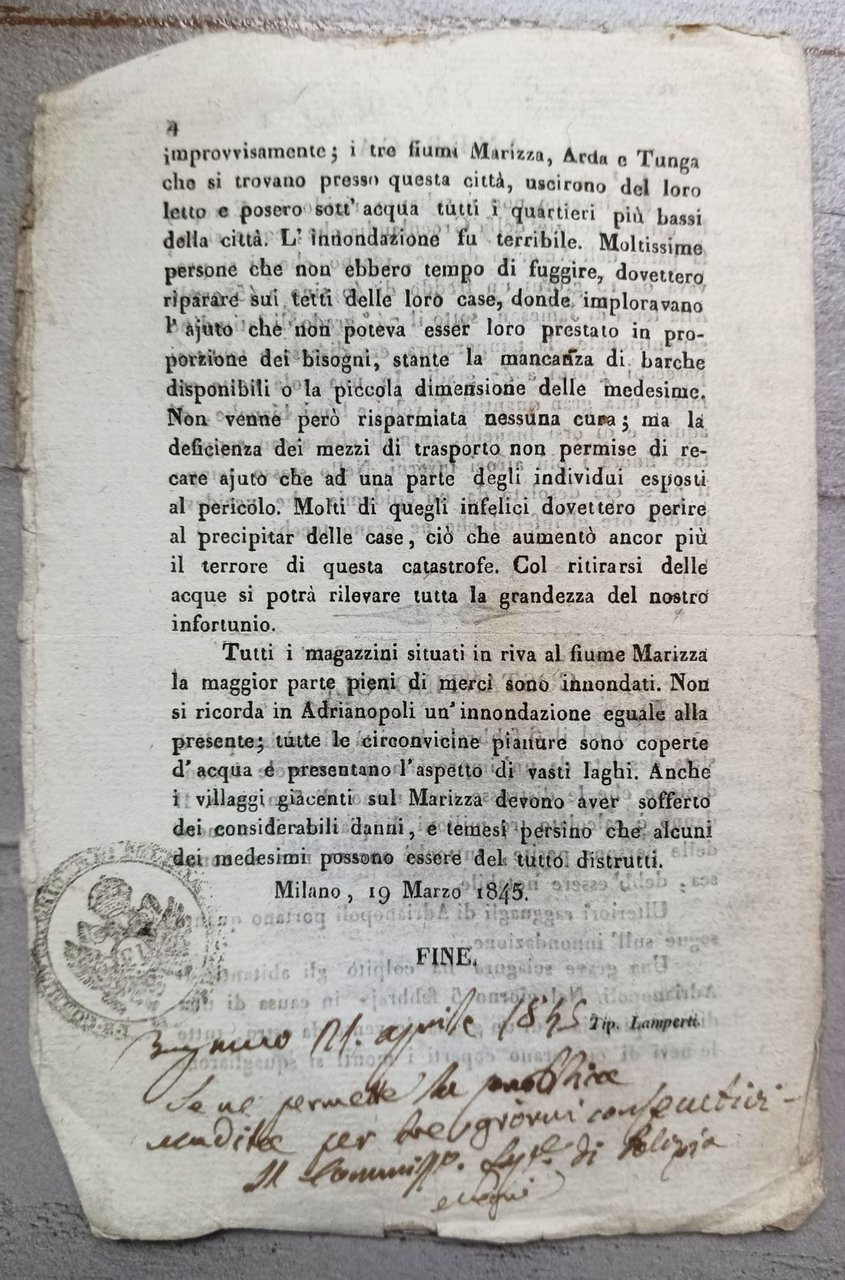 4
improvvisamente; i tre fiumi Marizza, Arda e Tunga
che si trovano presso questa città, uscirono del loro
letto e posero sott' acqua tutti i quartieri più bassi
della città. L' innondazione fu terribile. Moltissime
persone che non ebbero tempo di fuggire, dovettero
riparare sui tetti delle loro case, donde imploravano
l' ajuto che non poteva esser loro prestato in pro-
porzione dei bisogni, stante la mancanza di barche
disponibili o la piccola dimensione delle medesime.
Non venne però risparmiata nessuna cura; ma la
deficienza dei mezzi di trasporto non permise di re-
care ajuto che ad una parte degli individui esposti
al pericolo. Molti di quegli infelici dovettero perire
al precipitar delle case, ciò che aumentò ancor più
il terrore di questa catastrofe. Col ritirarsi delle
acque si potrà rilevare tutta la grandezza del nostro
infortunio.
Tutti i magazzini situati in riva al fiume Marizza
la maggior parte pieni di merci sono innondati. Non
si ricorda in Adrianopoli un' innondazione eguale alla
presente; tutte le circonvicine pianure sono coperte
d' acqua e presentano l' aspetto di vasti laghi. Anche
i villaggi giacenti sul Marizza devono aver sofferto
dei considerabili danni, e temesi persino che alcuni
dei medesimi possono essere del tutto distrutti.
Milano, 19 Marzo 1845.
FINE.
Tip. Lamperti.
21. aprile 1845
Se ne permette la pubblica
vendita per tre giorni consecutivi
Il Commiss. di Polizia